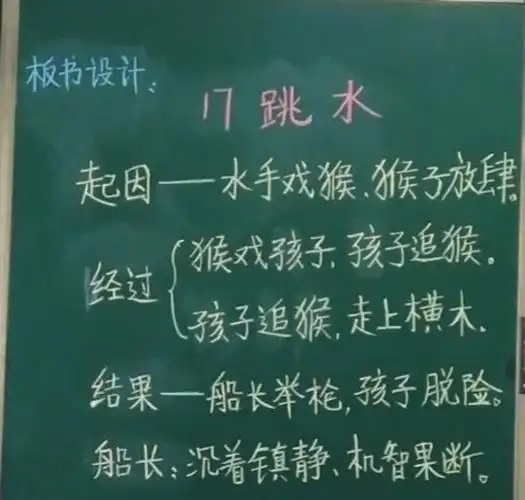 板书设计：
17 跳 水
起因——水手戏猴、猴子放肆。
经过 { 猴戏孩子，孩子追猴。
孩子追猴，走上横木。
结果—船长举枪，孩子脱险。
船长：沉着镇静、机智果断。